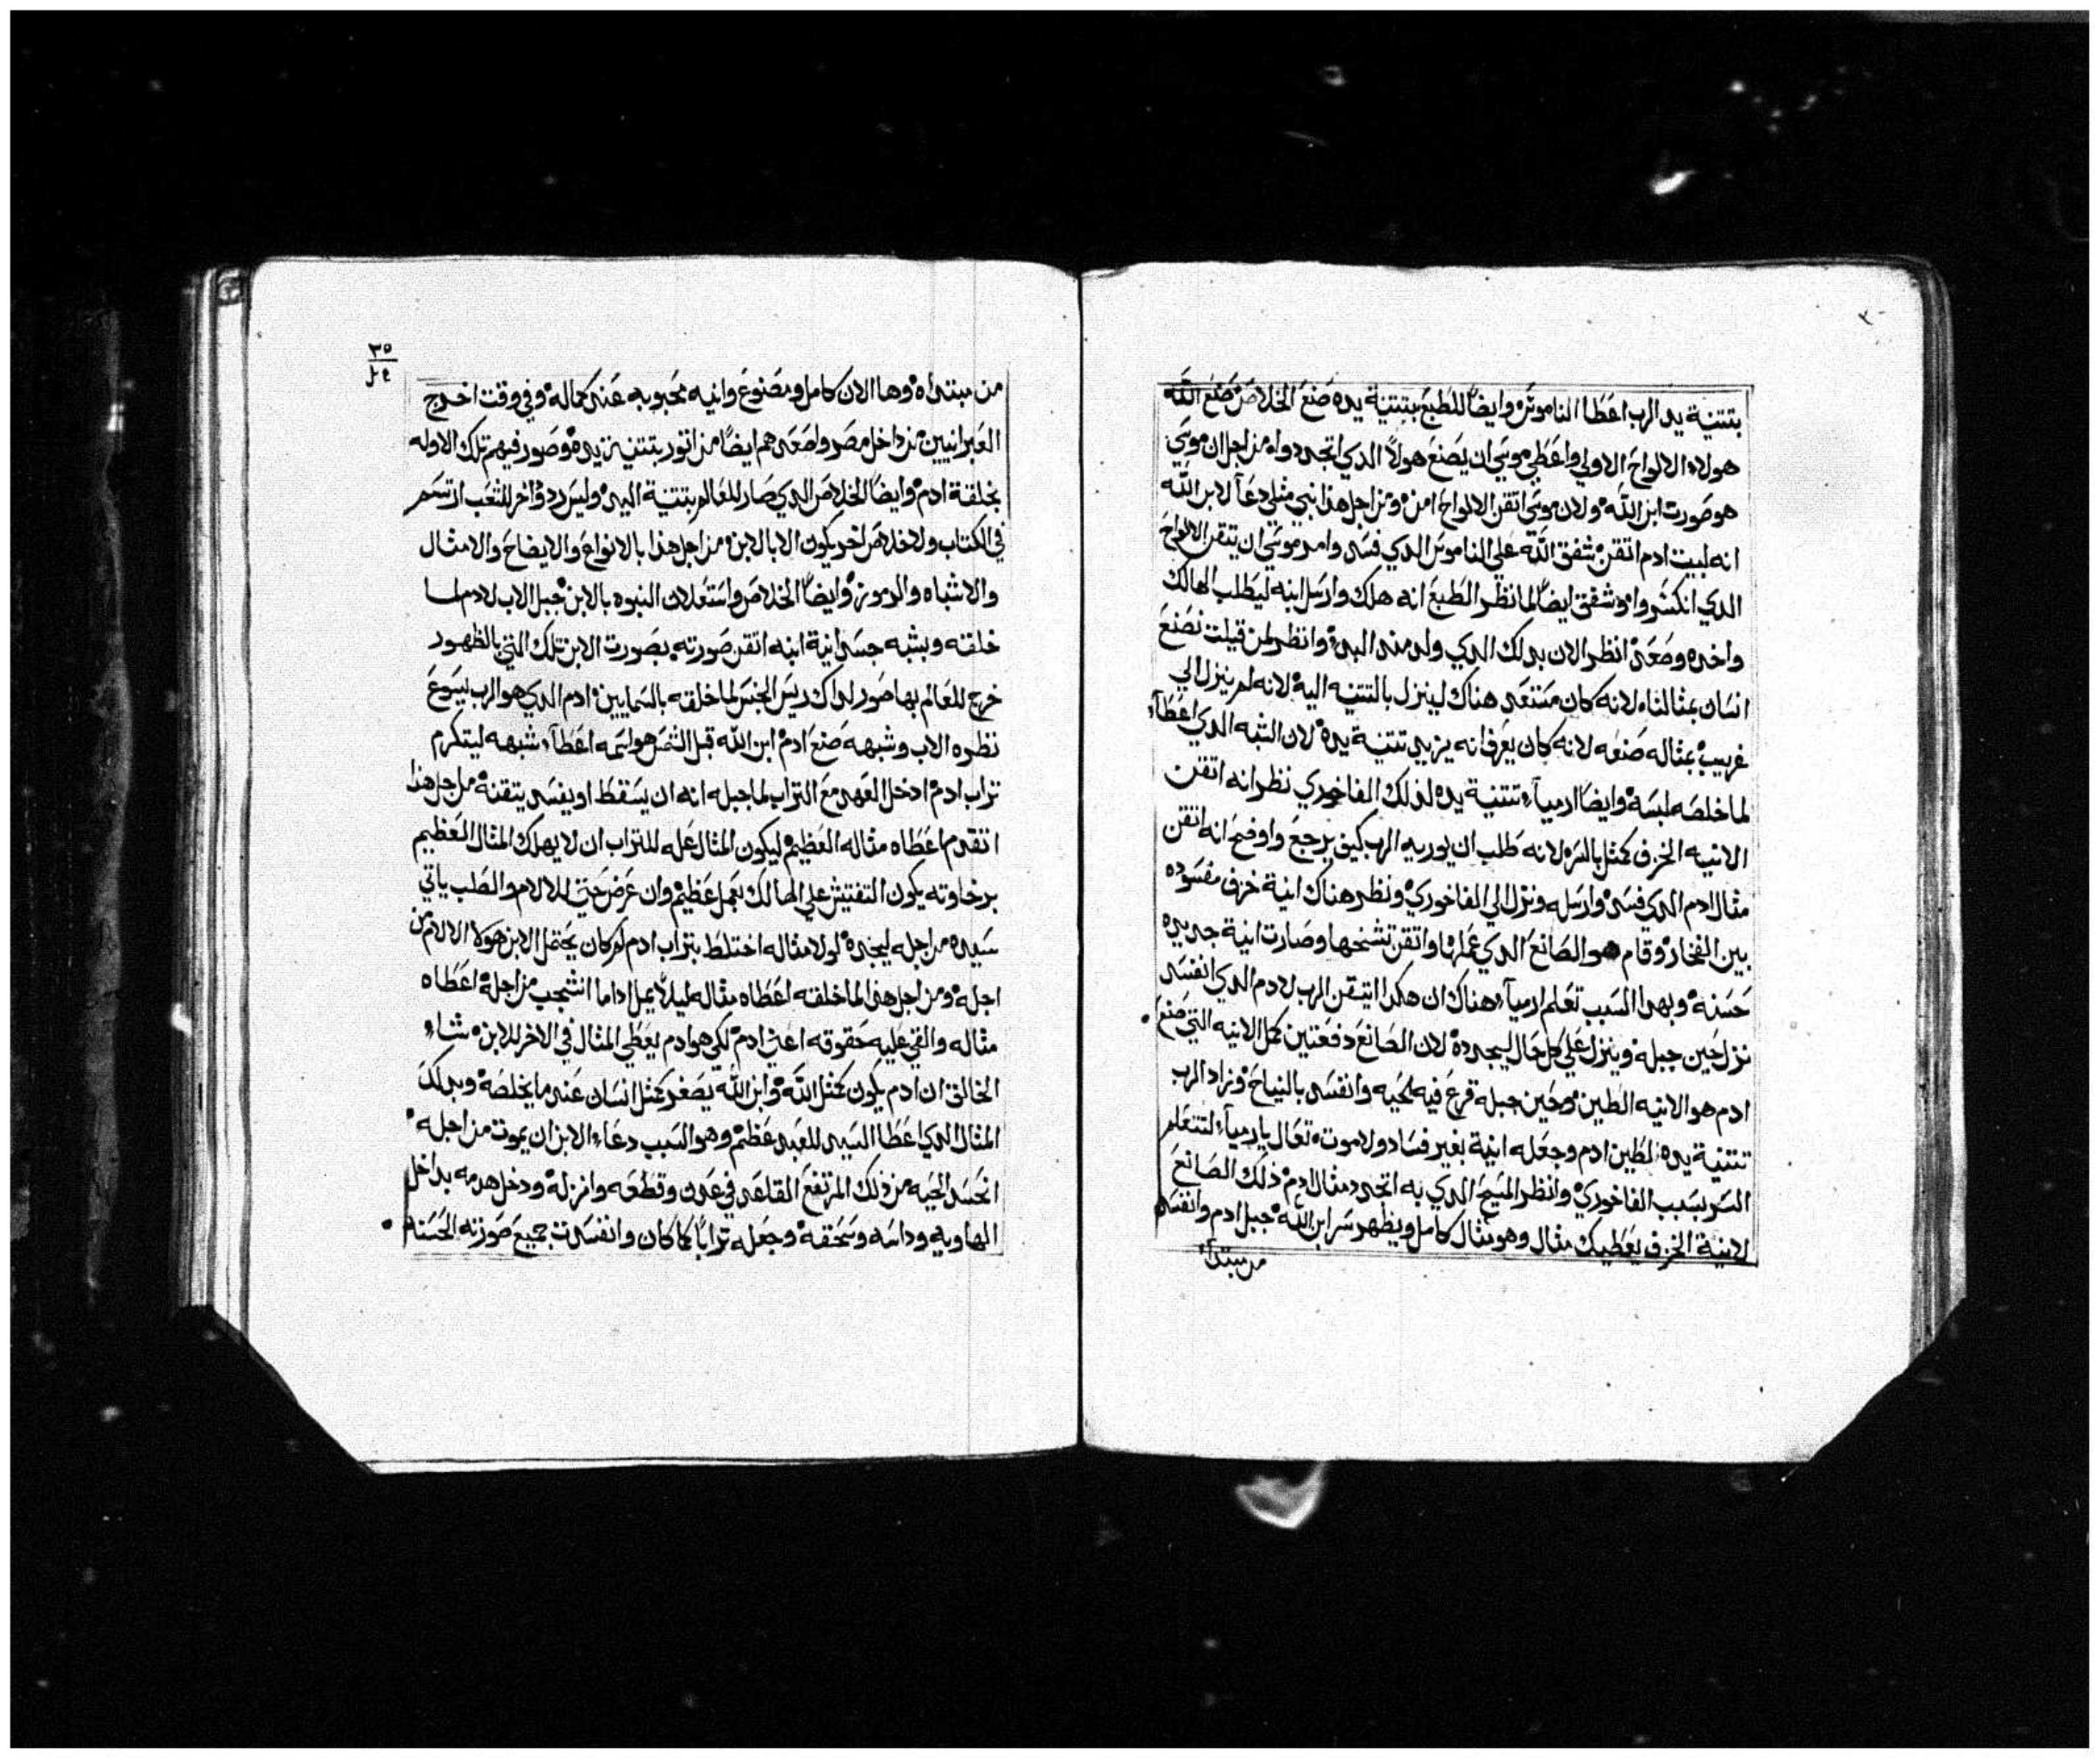 بتتنية يد الرب اعطا الناموس وايضاً للطبع بتتنية يده صنع الخلاص صنع الله
هولاء الالواح الاولي واعطي موسي ان يصنع هولاً الدي اتجددواه من اجل ان موسي
هو صورت ابن الله ولان موسي اتقن الالواح امن ومن اجل هذا نبي مثلي دعاً لابن الله
انه لبيت ادم اتقن شفق الله علي الناموس الدي فسد وامر موسي ان يتقن الالواح
الدي انكسروا وشفق ايضاً لما نظر الطبع انه هلك وارسل ابنه ليطلب الهالك
واخده وصعد انظر الان بدلك الدي ولد منه البدء وانظر لمن قيلت نصنع
انسان بمثالنا لانه كان مستعد هناك لينزل بالتتنيه اليه لانه لم ينزل الي
غريب بمثاله صنعه لانه كان يعرف انه يزيد تتنية يده لان الشبه الدي اعطاء
لما خلصه لبسه وايضاً ارمياء تتنية يده لذلك الفاخوري نظر انه اتقن
الانيه الخزف كمثل بالسره لانه طلب ان يوريه الرب كيف يرجع واوضح انه اتقن
مثال ادم الدي فسد وارسله ونزل الي الفاخوري ونظر هناك انية خزف مفسوده
بين الفخار وقام هو الصانع الدي عملها واتقن تشنخها وصارت انية جديده
حسنه وبهدا السبب تعلم ارمياء هناك ان هكدا اتيقن الرب لادم الدي انفسد
نزل حين جبله وينزل علي كل حال ليجدده لان الصانع دفعتين كمل الانيه التي صنع
ادم هو الانيه الطين وحين جبله قرع فيه الحيه وانفسد بالنياح وزاد الرب
تتنية يده لطين ادم وجعله انية بغير فساد ولاموت تعال يا ارمياء لتتعلم
السر بسبب الفاخوري وانظر المسيح الدي به اتجدد مثال ادم ذلك الصانع
لانية الخزف يعطيك مثال وهو مثال كامل ويظهر سر ابن الله جبل ادم وانفسد
من مبتداه
٣٥
من مبتداه وها الان كامل ومصنوع وانيه محبوبه عند كماله وفي وقت اخرج
العبرانيين من داخل مصر واصعدهم ايضاً من اتور بتتنية يده وصور فيهم تلك الاوله
بخلقة ادم وايضاً الخلاص الدي صار للعالم بتتنية اليد وليس ردواخر للشعب ارتسم
في الكتاب ولاخلاص اخر يكون الا بالابن من اجل هذا بالانواع والايضاح والامثال
والاشباه والرموز وايضاً الخلاص واستعلان النبوه بالابن جبل الاب لادم لما
خلقه وبشبه جسدانية ابنه اتقن صورته بصورت الابن تلك التي بالظهور
خرج للعالم بها صور لداك ريس الجنس لما خلقه بالسمايين ادم الدي هو الرب يسوع
نظره الاب وشبهه صنع ادم ابن الله قبل الشمس هو اسمه اعطاء شبهه ليتكرم
تراب ادم ادخل العهد مع التراب لما جبله انه ان يسقط او يفسد يتقنه من اجل هذا
اتقدم اعطاه مثاله العظيم ليكون المثال عله للتراب ان لا يهلك المثال العظيم
برخاوته يكون التفتيش علي الهالك بعمل عظيم وان عرض حتي للالام والطلب ياتي
سيده من اجله ليجده لولا مثاله اختلط بتراب ادم لم كان يحتمل الابن هولا الالام من
اجله ومن اجل هذا لما خلقه اعطاه مثاله ليلا يمل اداما انشجب من اجله اعطاه
مثاله والقي عليه حقوقه اعني ادم لكي هو ادم يعطي المثال في الاخر للابن شاء
الخالق ان ادم يكون كمثل الله وابن الله يصغر كمثل انسان عندما يخلصه وبدلك
المثال الدي اعطا السيد للعبد عظم وهو السبب دعاء الابن ان يموت من اجله
انحسد الحيه من ذلك المرتفع القاعد في عدن وقطعه وانزله ودخل هدمه بداخل
الهاويه وداسه وسحقه وجعله تراباً كما كان وانفسدت جميع صورته الحسنه